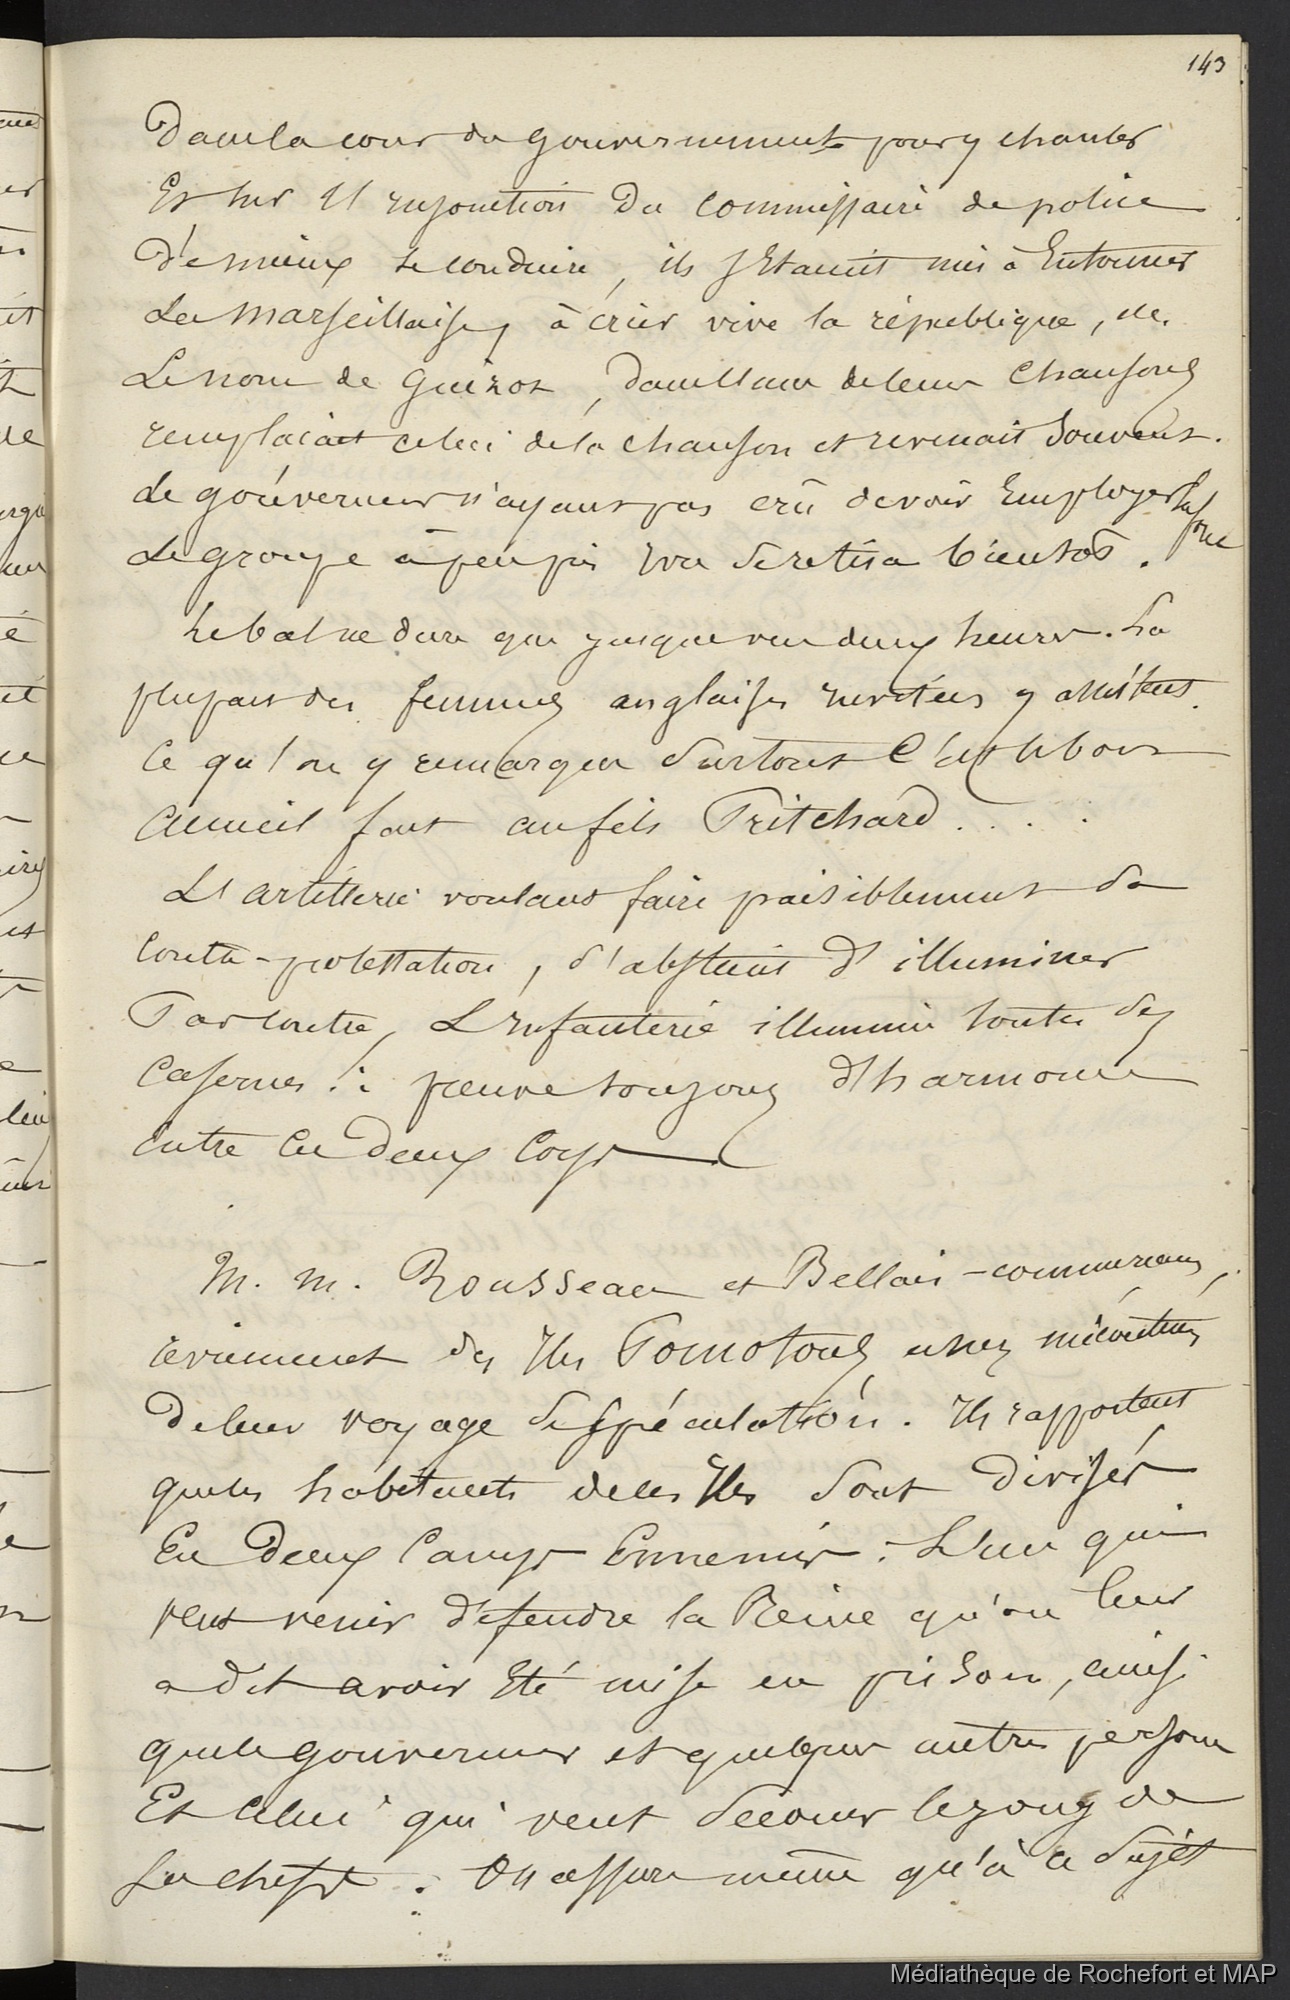 143
Dans la cour du gouvernement pour y chanter
Et sur l'injonction du commissaire de police
d'e mieux se conduire, ils s'Etaient mis à Entonner
La Marseillaise, à crier vive la république, etc.
Le nom de Guizot, dans l'une de leur chansons
remplaçait celui de la chanson et revenait souvent.
Le gouverneur n'ayant pas crû devoir Employer la force
Le groupe à peu près ivre se retira bientôt.
Le bal ne dura que jusque vers deux heures. La
plupart des femmes anglaises invitées y assistent.
Ce qu'on y remarqua surtout c'est le bon
accueil fait au fils Pritchard....
L'artillerie voulant faire paisiblement sa
contre-protestation, s'abstint d'illuminer
Par contre, L'infanterie illumine toutes ses
casernes: preuve toujours d'harmonie
entre ces deux corps
M. M. Rousseau et Bellais - commerçans,
reviennent des Iles Pomotous assez mécontens
de leur voyage de spéculation. Ils rapportent
que les habitants de ces Iles sont divisés
En deux camps Ennemis: L'un qui
veut venir défendre la Reine qu'on leur
a dit avoir Eté mise en prison, ainsi
que le gouverneur et quelques autres person
Et celui qui veut secouer le joug de
ses chefs. On assure même qu'à ce sujet
Médiathèque de Rochefort et MAP